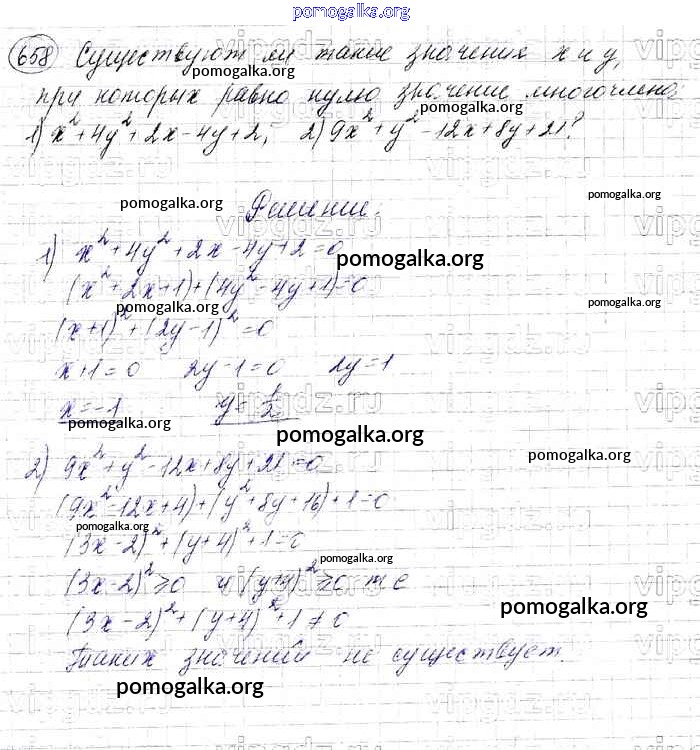 pomogalka.org
658 Существуют ли такие значения х и у,
pomogalka.org
при которых равно нулю значение многочлена:
pomogalka.org
1) x²+4y²+2x-4y+2; 2) 9x²+y²-12x+8y+21?
pomogalka.org
pomogalka.org
vipgdz.ru
Решение.
1) x²+4y²+2x-4y+2=0
pomogalka.org
(x²+2x+1)+(4y²-4y+1)=0
pomogalka.org
pomogalka.org
(x+1)²+(2y-1)²=0
x+1=0 2y-1=0 2y=1
x=-1 y=1/2
pomogalka.org
pomogalka.org
2) 9x²+y²-12x+8y+21=0
pomogalka.org
(9x²-12x+4)+(y²+8y+16)+1=0
pomogalka.org
(3x-2)²+(y+4)²+1=0
pomogalka.org
(3x-2)²≥0 и (y+4)²≥0, т е
pomogalka.org
(3x-2)²+(y+4)²+1≠0
Таких значений не существует.
pomogalka.org